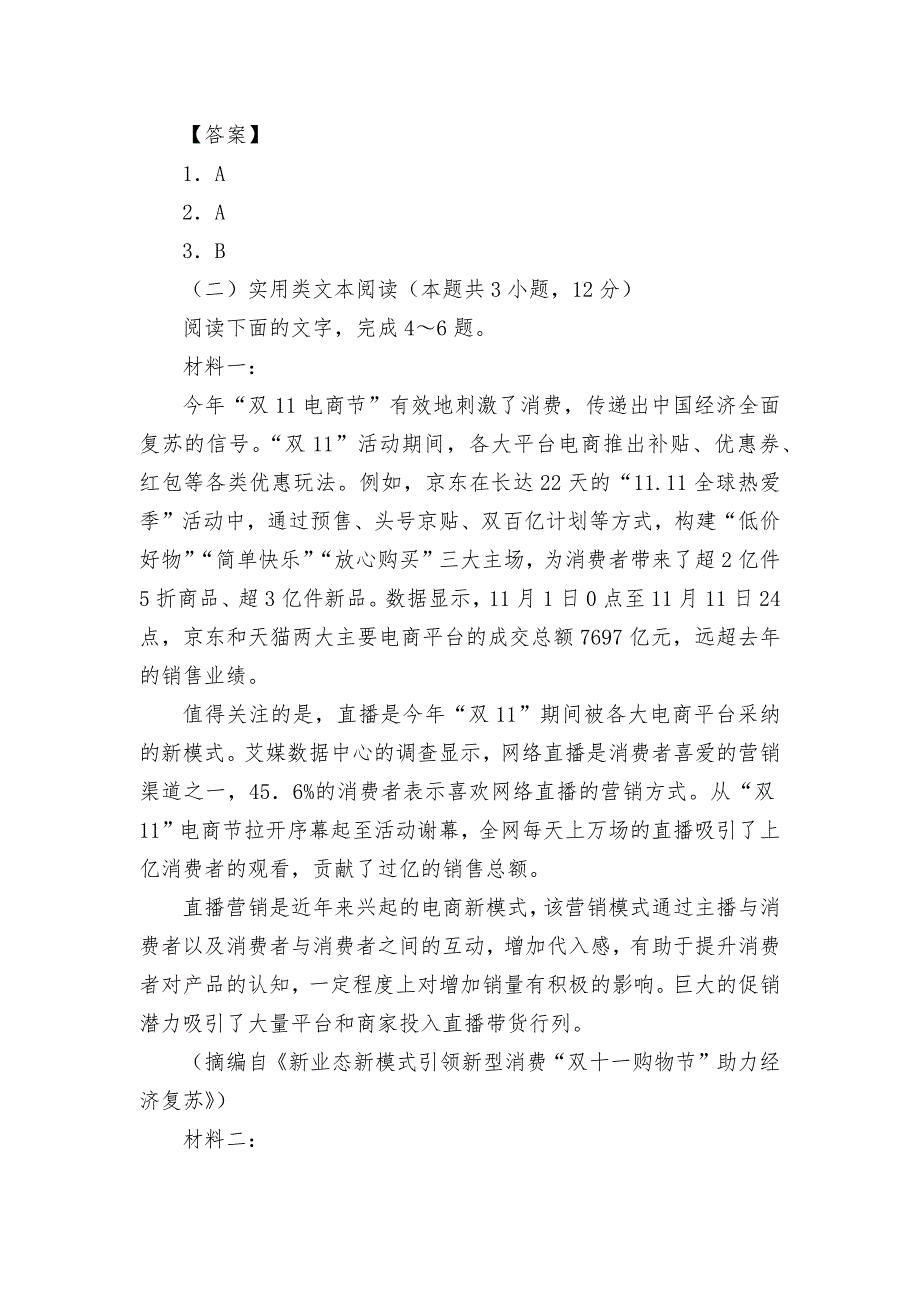 【答案】
1．A
2．A
3．B
（二）实用类文本阅读（本题共3小题，12分）
阅读下面的文字，完成4～6题。
材料一：
今年“双11电商节”有效地刺激了消费，传递出中国经济全面
复苏的信号。“双11”活动期间，各大平台电商推出补贴、优惠券、
红包等各类优惠玩法。例如，京东在长达22天的“11.11全球热爱
季”活动中，通过预售、头号京贴、双百亿计划等方式，构建“低价
好物”“简单快乐”“放心购买”三大主场，为消费者带来了超2亿件
5折商品、超3亿件新品。数据显示，11月1日0点至11月11日24
点，京东和天猫两大主要电商平台的成交总额7697亿元，远超去年
的销售业绩。
值得关注的是，直播是今年“双11”期间被各大电商平台采纳
的新模式。艾媒数据中心的调查显示，网络直播是消费者喜爱的营销
渠道之一，45．6%的消费者表示喜欢网络直播的营销方式。从“双
11”电商节拉开序幕起至活动谢幕，全网每天上万场的直播吸引了上
亿消费者的观看，贡献了过亿的销售总额。
直播营销是近年来兴起的电商新模式，该营销模式通过主播与消
费者以及消费者与消费者之间的互动，增加代入感，有助于提升消费
者对产品的认知，一定程度上对增加销量有积极的影响。巨大的促销
潜力吸引了大量平台和商家投入直播带货行列。
（摘编自《新业态新模式引领新型消费“双十一购物节”助力经
济复苏》）
材料二：